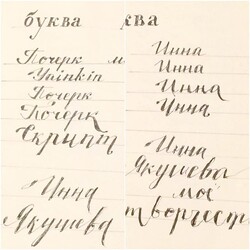 буква
Почерк м
Yninkin
Почерк
Почерк
Скрипт
Инна
Якушева
ква
Инна
Инна
Инна
Инна
Инна
Якушева
мое
творчест